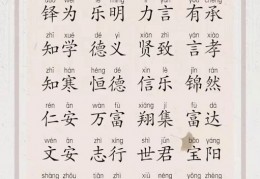 铎为 乐明 力言 有承
zhī xué dé yì xián zhì yán xiào
知学 德义 贤致 言孝
zhī hán héng dé xìn lè jǐn rán
知寒 恒德 信乐 锦然
rén ān wàn fù xiáng jí fù dá
仁安 万富 翔集 富达
wén ān zhì xíng shì jūn bǎo yáng
文安 志行 世君 宝阳